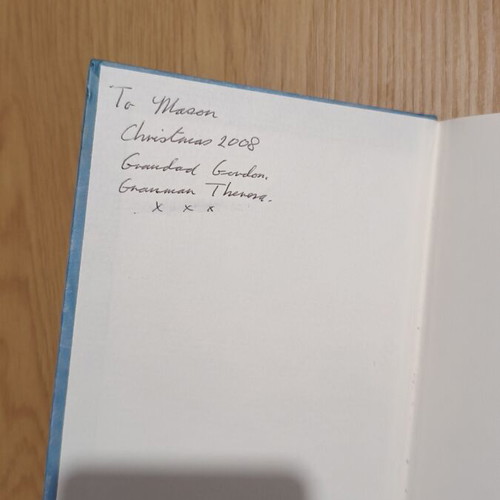 To Mason
Christmas 2008
Grandad Gordon.
Granman Theresa.
x x x